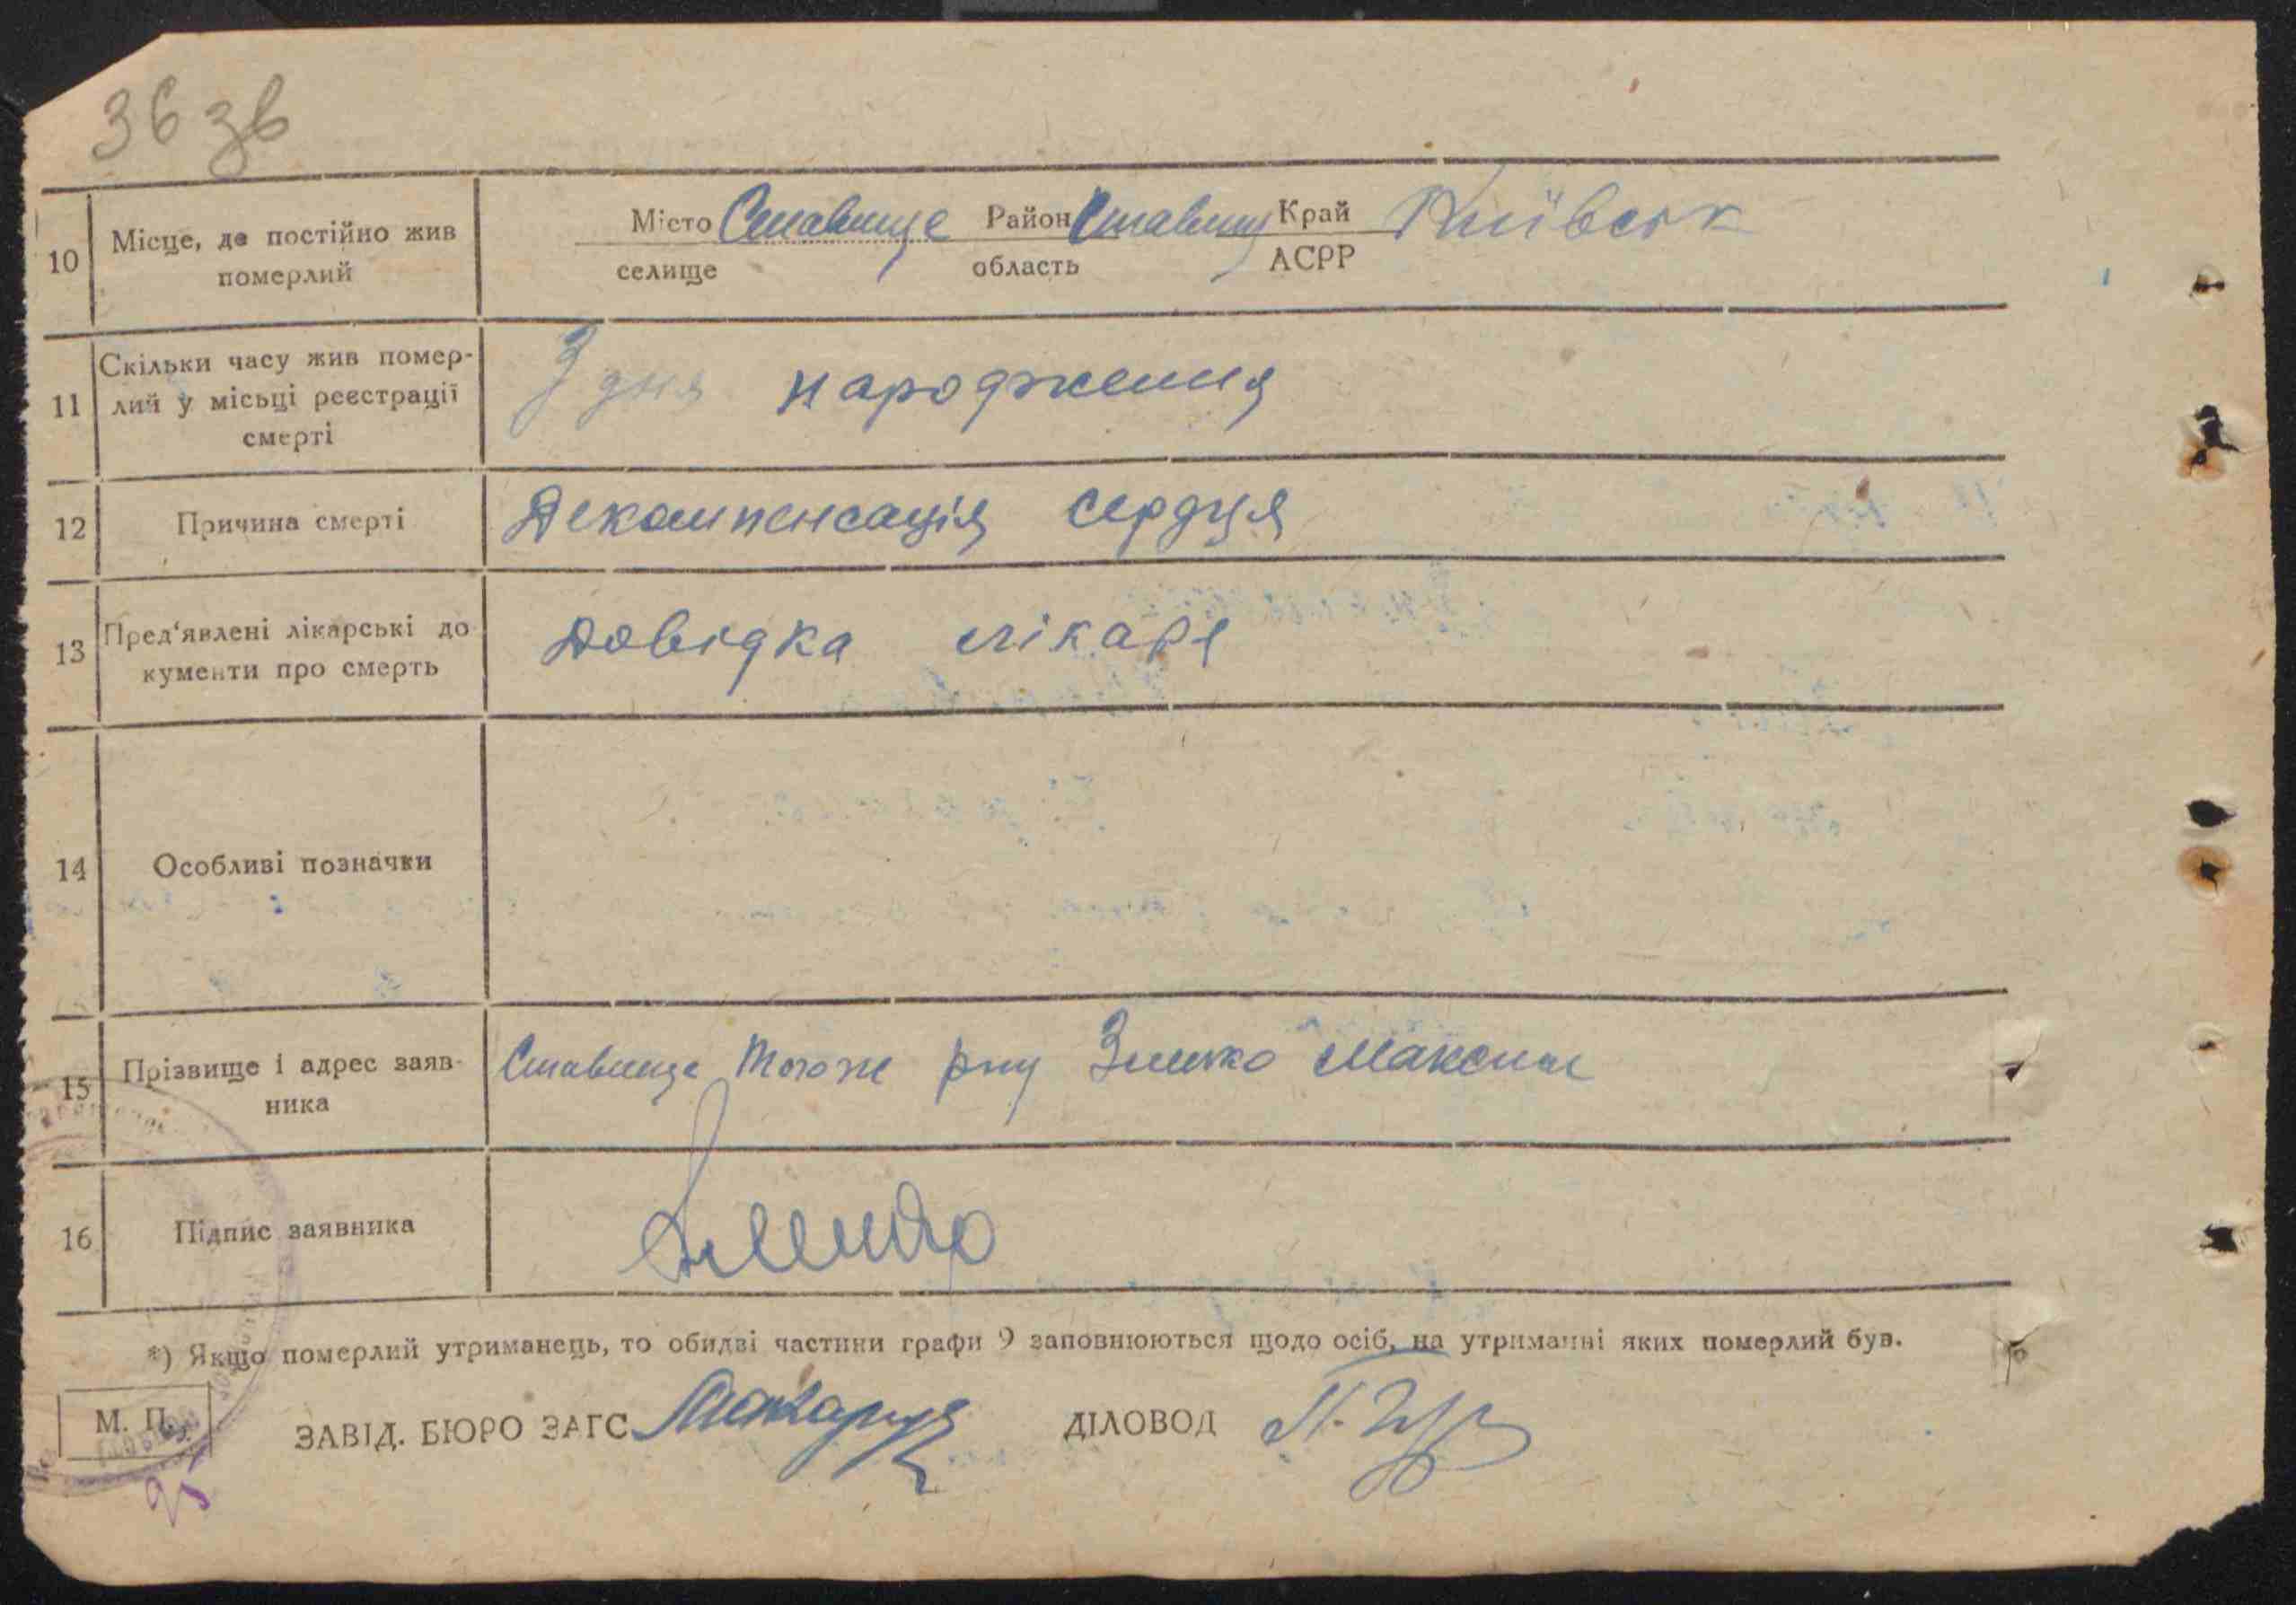 36 зв
10 Місце, де постійно жив померлий
Місто Ставище Район Ставищ Край Київськ
селище область АСРР
11 Скільки часу жив помер-
лий у місьці реєстрації
смерті
З дня народження
12 Причина смерті Декомпенсація сердця
13 Пред'явлені лікарські до
кументи про смерть
Довідка лікаря
14 Особливі позначки
15 Прізвище і адрес заяв-
ника
Ставище того ж р-ну Зленко Максим
16 Підпис заявника
*) Якщо померлий утриманець, то обидві частини графи 9 заповнюються щодо осіб, на утриманні яких померлий був.
М. П. ЗАВІД. БЮРО ЗАГС ДІЛОВОД
95